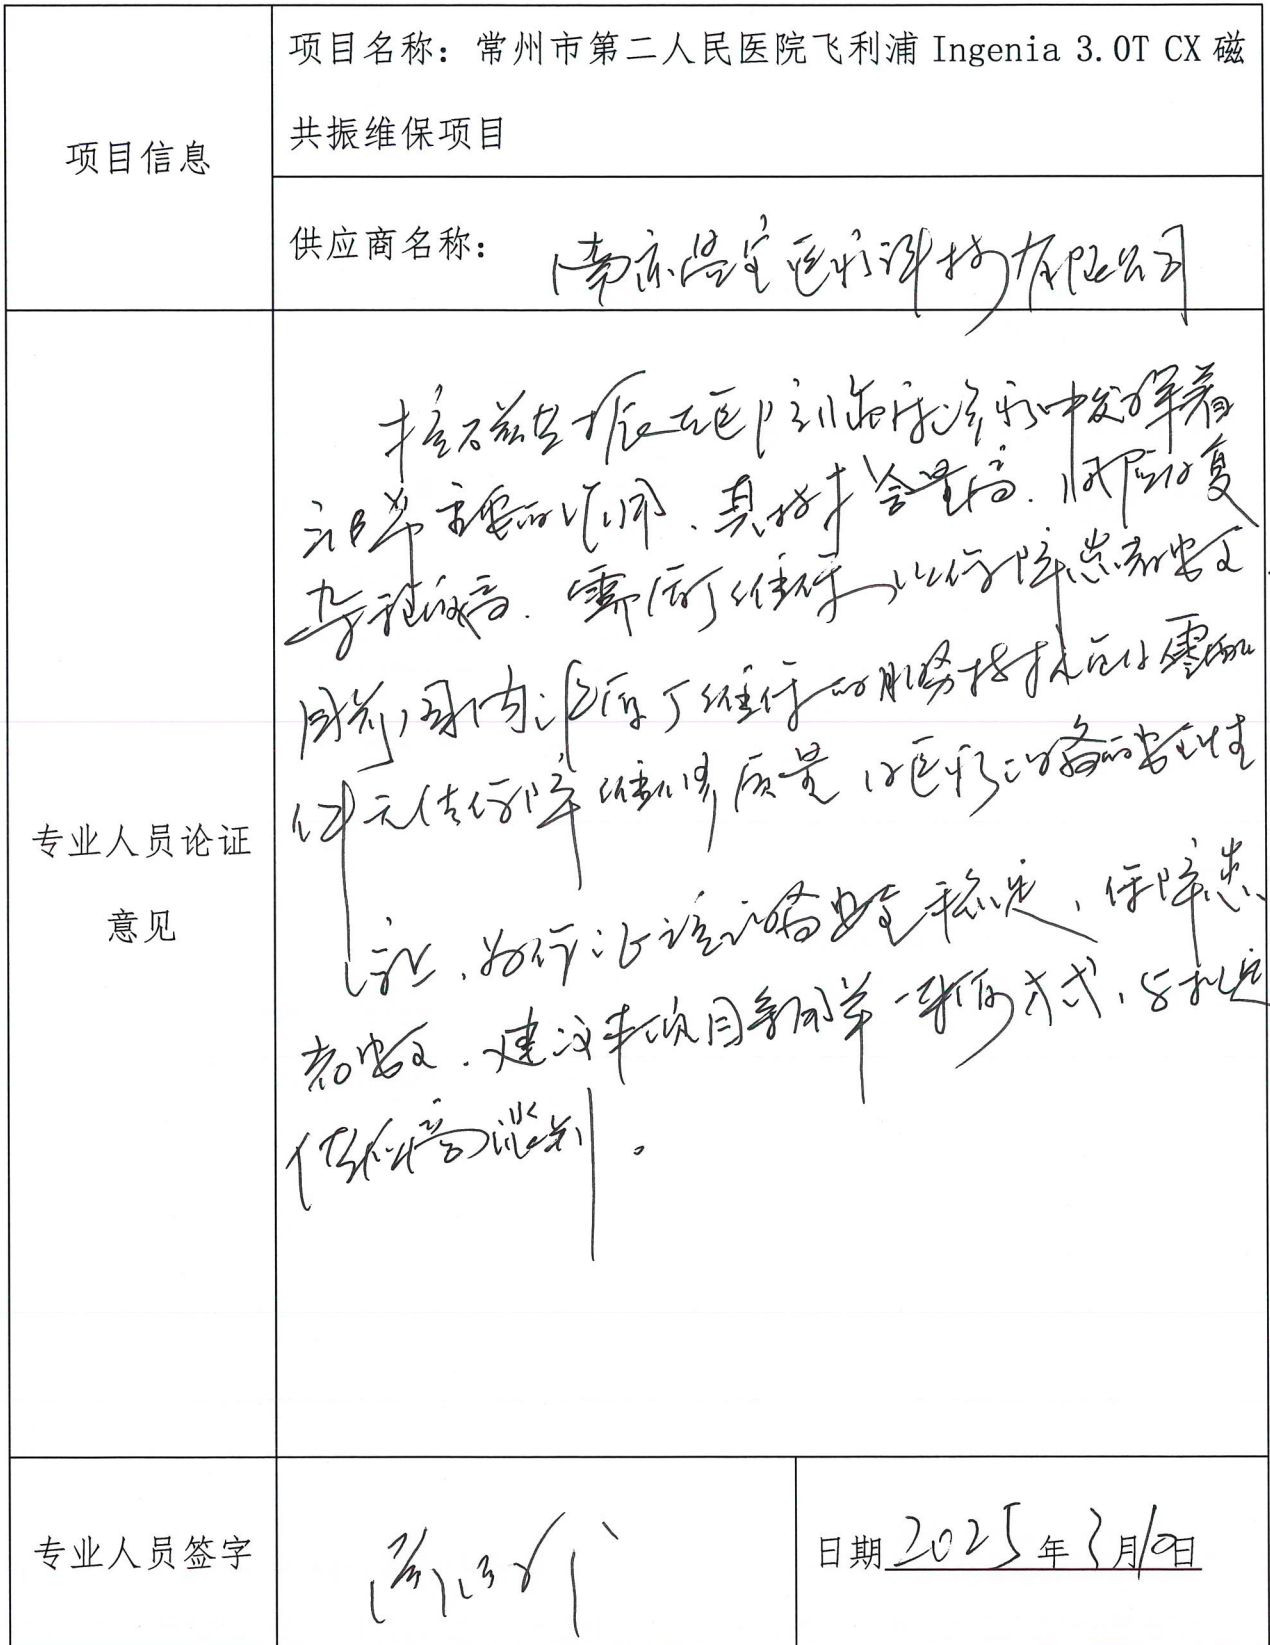 项目信息
项目名称：常州市第二人民医院飞利浦 Ingenia 3.0T CX 磁
共振维保项目
供应商名称：
南京 医疗科技有限公司
专业人员论证
意见
核磁共振在医院临床诊疗中发挥着
非常重要的作用、其技术含量高、
杂程度高. 需原厂维保 以保障患者安全
目前国内 原厂维保的服务技术 零配
件无法保障维修质量 医疗设备的安全性
，为保证该设备安全稳定，保障患
者安全. 建议本项目采用单一来源方式，与拟定
供应商谈判。
专业人员签字
日期 2025 年 3 月 10 日